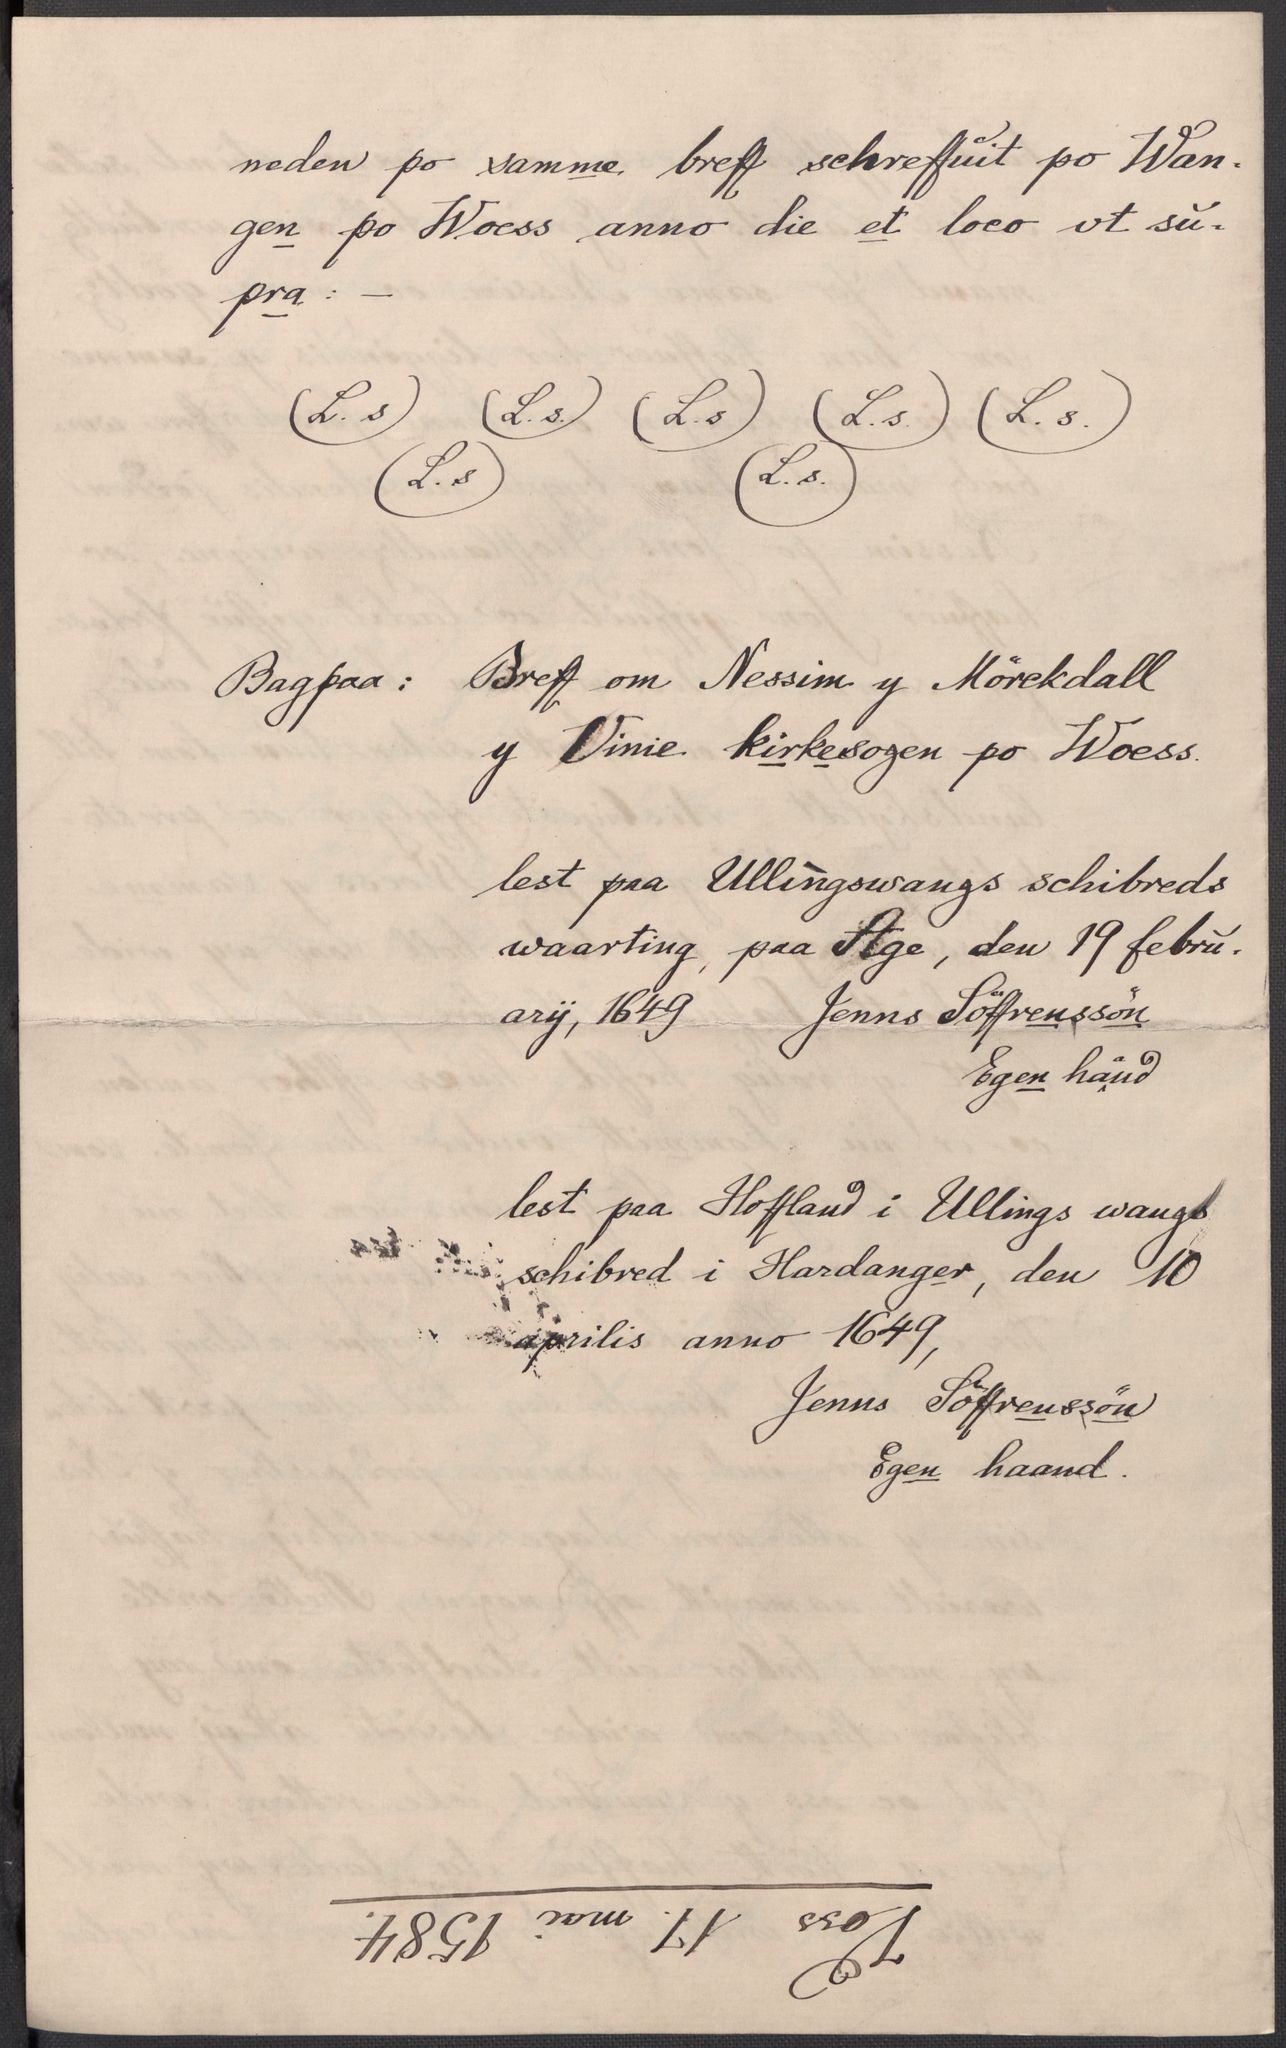 neden po samme breff schreffŭit po Wan-
gen po Woess anno die et loco vt sŭ-
pra: —
(L. s) (L. s.) (L. s) (L. s.) (L. s.)
(L. s) (L. s.)
Bagpaa: Breff om Nessim y Mörekdall
y Vinie kirkesogen po Woess.
lest paa Ullingswangs schibreds
waarting, paa Age, den 19 febrŭ-
arÿ, 1649 Jenns Söffrenssön
Egen hånd
lest paa Hoffland i Ullings wangs
schibred i Hardanger, den 10
aprilis anno 1649,
Jenns Söffrenssön
Egen haand.
Voss 17. mai 1584.